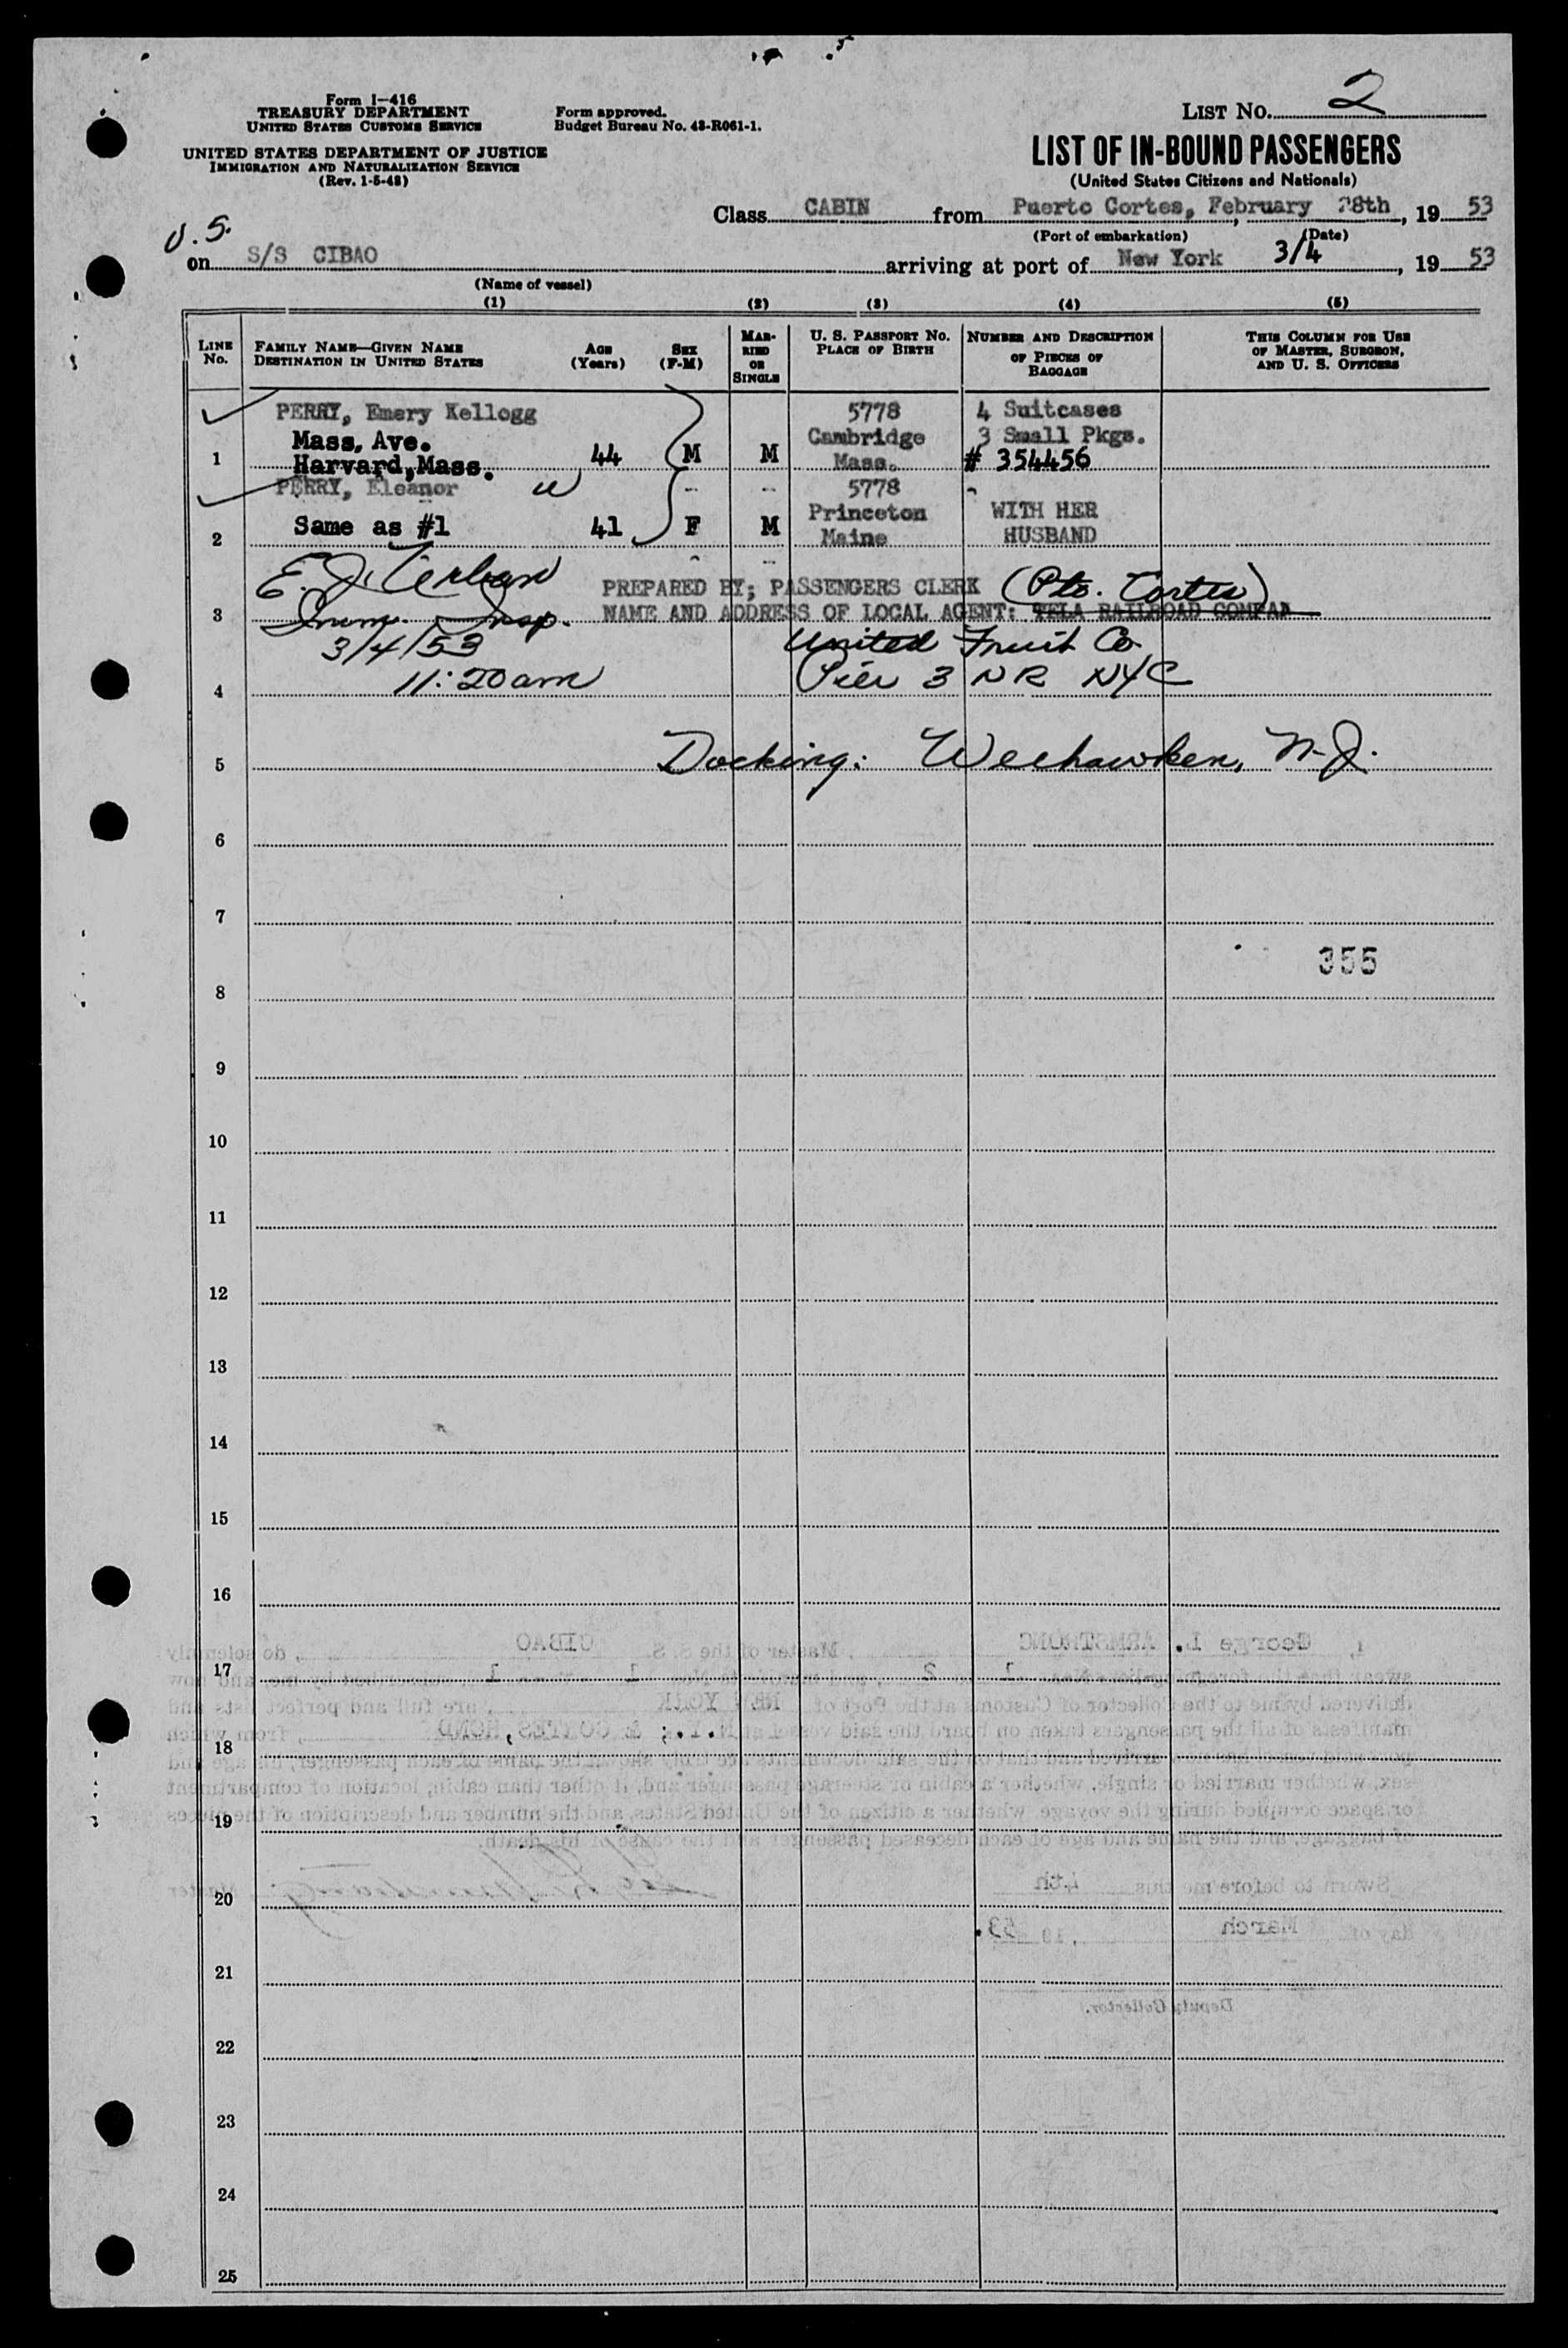 Form I-416
TREASURY DEPARTMENT
UNITED STATES CUSTOMS SERVICE
UNITED STATES DEPARTMENT OF JUSTICE
IMMIGRATION AND NATURALIZATION SERVICE
(Rev. 1-5-48)
Form approved.
Budget Bureau No. 43-R061-1.
LIST No. 2
LIST OF IN-BOUND PASSENGERS
(United States Citizens and Nationals)
Class CABIN from Puerto Cortes, February 28th, 19 53
(Port of embarkation) (Date)
U.S.
on S/S CIBAO arriving at port of New York 3/4, 19 53
(Name of vessel)
(1) (2) (3) (4) (5)
LINE No. FAMILY NAME—GIVEN NAME DESTINATION IN UNITED STATES AGE (Years) SEX (F-M) MARRIED OR SINGLE U. S. PASSPORT NO. PLACE OF BIRTH NUMBER AND DESCRIPTION OF PIECES OF BAGGAGE THIS COLUMN FOR USE OF MASTER, SURGEON, AND U. S. OFFICERS
PERRY, Emery Kellogg 5778 4 Suitcases
Mass, Ave. Cambridge 3 Small Pkgs.
1 Harvard, Mass. 44 M M Mass. # 354456
PERRY, Eleanor W -- -- 5778
Same as #1 41 F M Princeton WITH HER
2 Maine HUSBAND
PREPARED BY; PASSENGERS CLERK (Pto. Cortes)
3 Imm. Insp. NAME AND ADDRESS OF LOCAL AGENT: TELA RAILROAD COMPAN
3/4/53 United Fruit Co.
4 11:20 am Pier 3 NR NYC
5 Docking: Weehawken, N.J.
6
7
355
8
9
10
11
12
13
14
15
16
I, George L. ARMSTRONG, Master of the S.S. CIBAO, do solemnly
17
delivered by me to the Collector of Customs at the Port of NEW YORK, are full and perfect lists and
manifests of all the passengers taken on board the said vessel at N.Y.; & CORTES, HOND, from which
18
sex, whether married or single, whether a cabin or steerage passenger and, if other than cabin, location of compartment
or space occupied during the voyage, whether a citizen of the United States, and the number and description of the pieces
19
of baggage, and the name and age of each deceased passenger and the cause of his death.
20
Sworn to before me this 4th Master
day of March, 19 53.
21
Deputy Collector.
22
23
24
25